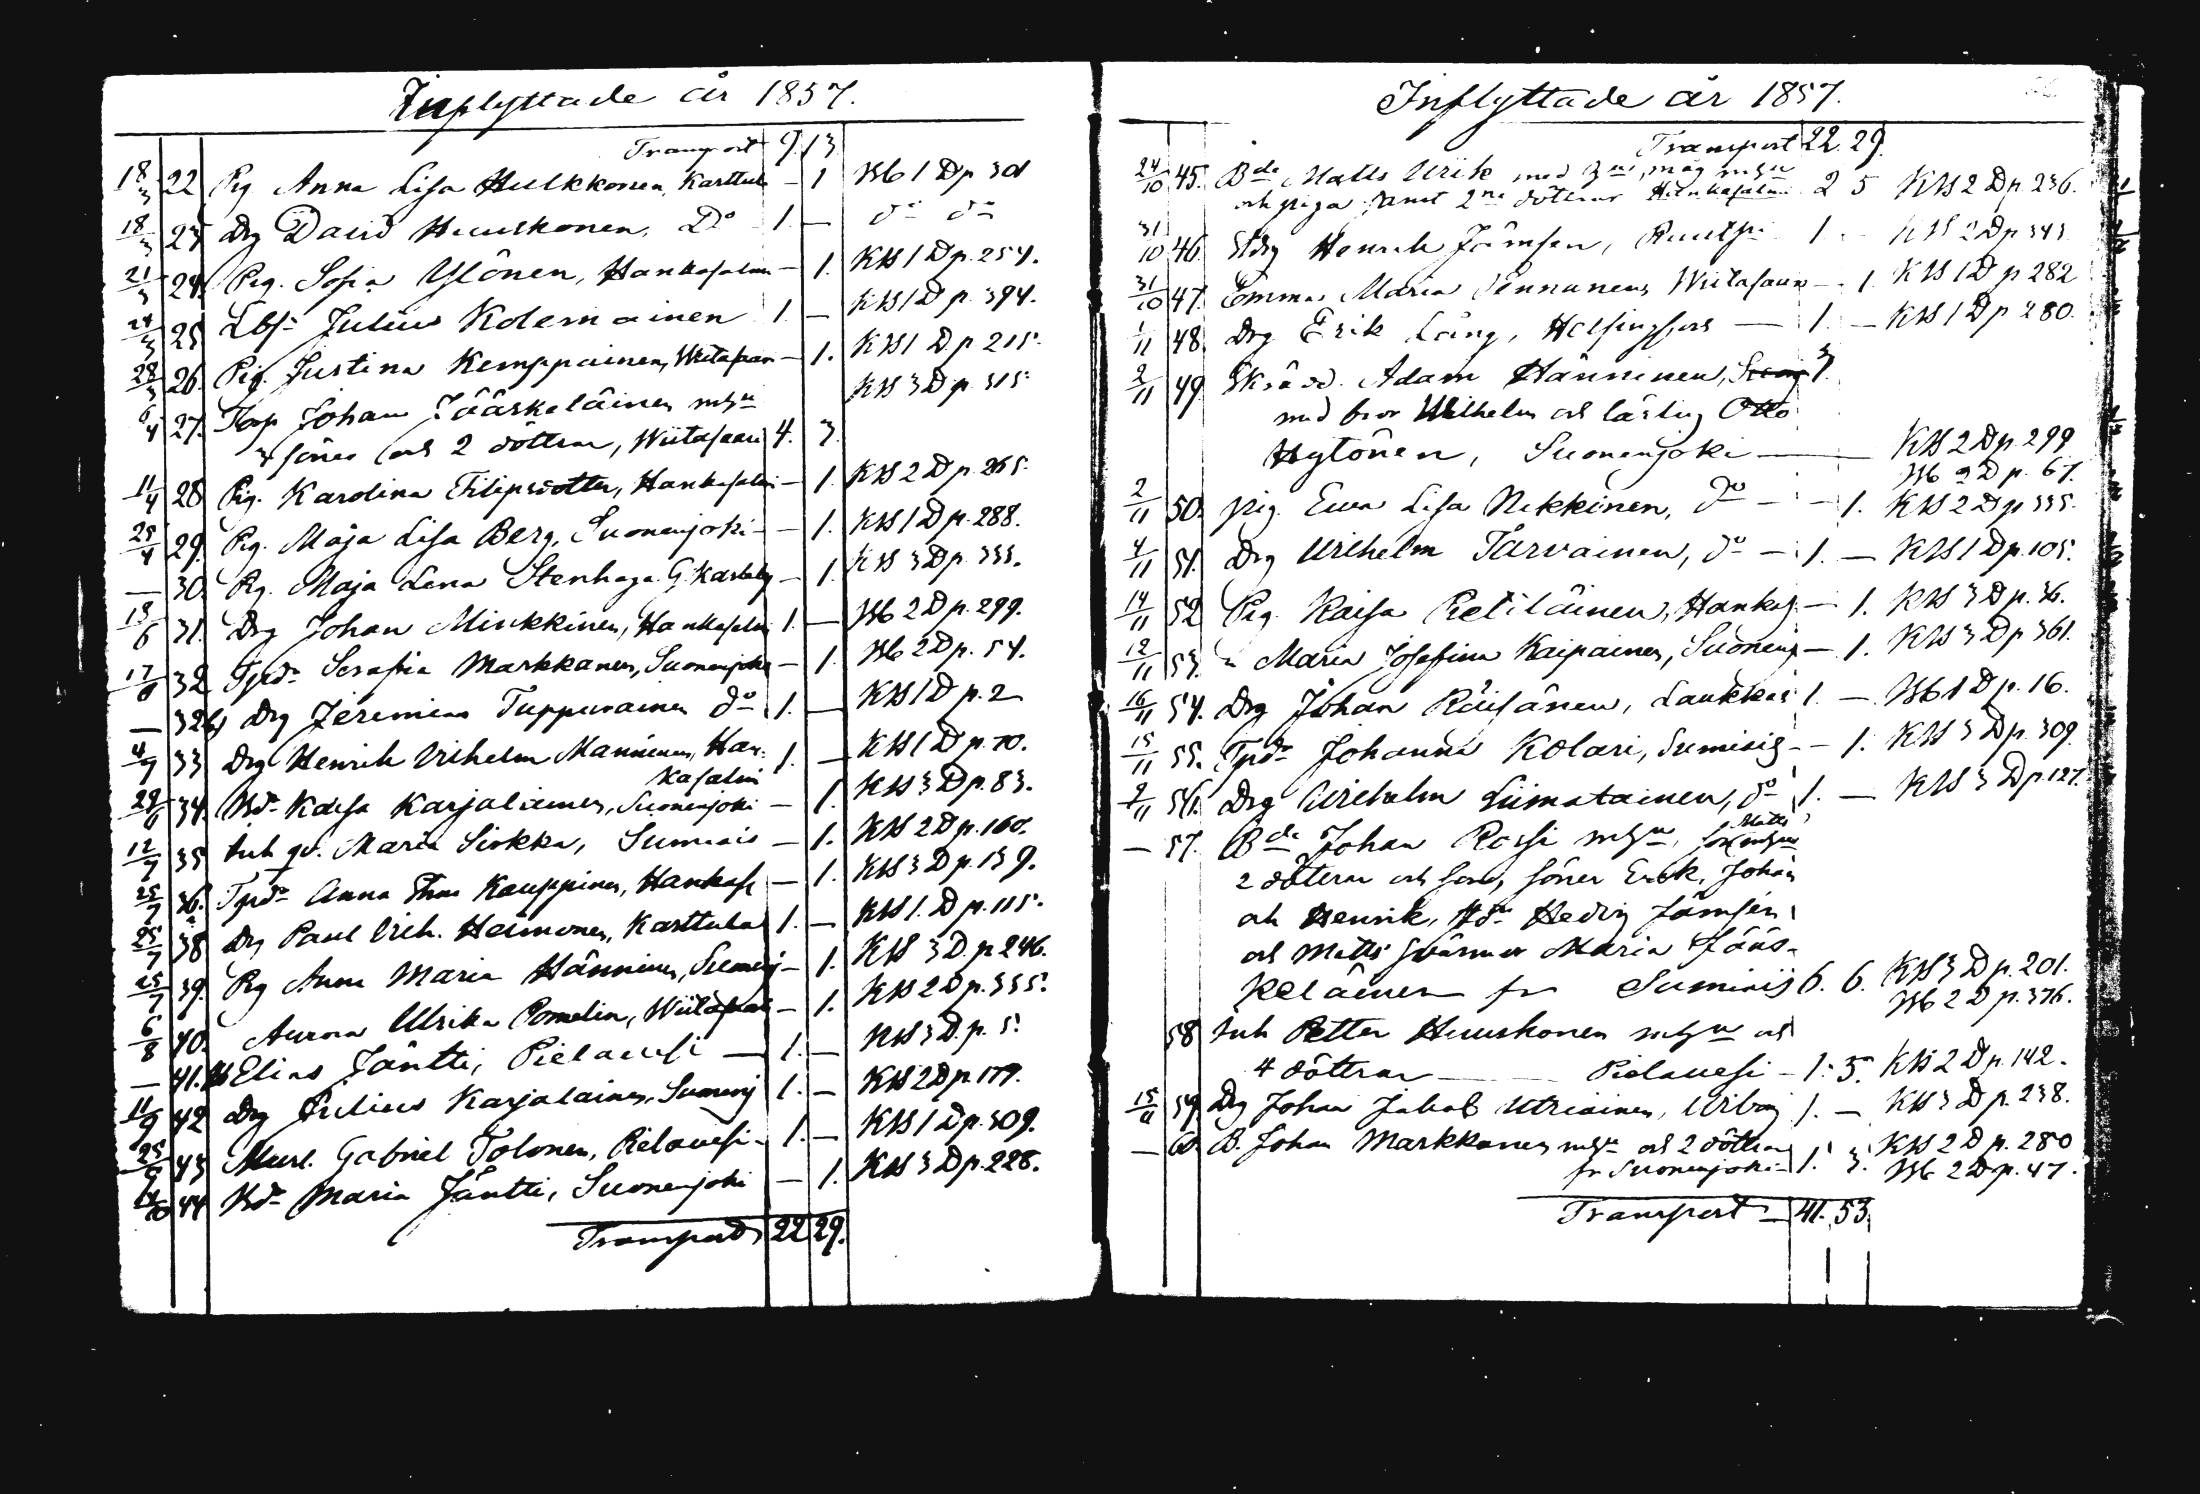 Inflyttade år 1857.
Transport 9. 13
18/3 22 Pig Anna Lisa Hulkkonen, Karttula – 1 Kb 1 D p 301
18/3 23 Drg David Huuskonen, Do 1. – do do
21/3 24. Pig. Sofia Ylönen, Hankasalmi – 1. KB 1 D p. 254.
24/3 25 Lbf: Julius Kolemainen 1. – KB 1 D p. 394.
28/3 26. Pig. Justina Kemppainen, Wiitasaari – 1. KB 1 D. p 215.
6/4 27. Torp Johan Jääskeläinen m hu KB 3 D p. 315
söner och 2 döttrar, Wiitasaari 4. 3.
11/4 28 Pig. Karolina Filipsdotter, Hankasalmi – 1. KB 2 D p. 265.
25/4 29. Pig. Maja Lisa Berg, Suonenjoki – 1. KB 1 D p. 288.
— 30. Pig. Maja Lena Stenhaga G. Karleby – 1. KB 3 D p. 333.
13/6 31. Drg Johan Minkkinen, Hankasalmi 1. – Kb 2 D p. 299.
17/6 32 Tprdr Serafia Markkanen, Suonenjoki – 1. Kb 2 D p. 54.
— 32b) Drg Jeremias Tuppurainen do 1. – KB 1 D p. 2
4/7 33 Drg Henrik Wilhelm Manninen, Han- 1. – KB 1 D p. 70.
kasalmi
29/6 34. Kdr Kaisa Karjalainen, Suonenjoki – 1. KB 3 D p. 83.
12/7 35 Inh qv. Maria Sirkka, Sumiais – 1. KB 2 D p. 160.
25/7 36. Tprdr Anna Kauppinen, Hankas – 1. KB 3 D p. 139.
25/7 38 Drg Paul Wilh. Heimonen, Karttula 1. – KB 1. D p. 115.
25/7 39. Pig Anna Maria Hänninen, Suonenj – 1. KB 3 D. p 246.
6/8 40. Aurora Ulrika Pomelin, Wiitasaari – 1. KB 2 D p. 335.
— 41. Elias Jäntti, Pielavesi – 1. – KB 3 D. p. 5.
11/9 42 Drg Julius Karjalainen, Suonenj 1. – KB 2 D p 179.
25/9 43 Murl. Gabriel Tolonen, Pielavesi – 1. – KB 1 D p. 309.
14/10 44 Kdr Maria Jäntti, Suonenjoki – 1. KB 3 D p. 228.
Transport 22 29.
Inflyttade år 1857.
Transport 22. 29.
24/10 45. Bde Matts Ulrik med
och piga samt 2ne döttrar Hankasalmi 2 5 KB 2 D p. 236.
31/10 46. Henrik Jämsen, 1 – KB 2 D p 343
31/10 47. Emma Maria Pennanen, Wiitasaari – 1. KB 1 D p 282
1/11 48. Drg Erik Lång, Helsingfors — 1. – KB 1 D p 280.
2/11 49. Skrädd. Adam Hänninen, 3
med bror Wilhelm och lärling Otto
Hytönen, Suonenjoki — KB 2 D p. 299
Kb 2 D p. 67.
2/11 50. pig. Ewa Lisa Nekkinen, do – – 1. KB 2 D p 335.
4/11 51. Drg Wilhelm Tarvainen, do – 1. – KB 1 D p. 105.
14/11 52 Pig. Kaisa Retiläinen, Hankas. – 1. KB 3 D p. 36.
12/11 53. " Maria Josefina Kaipainen, Suonenj – 1. KB 3 D p 361.
16/11 54. Drg Johan Räisänen, Laukkas 1. – Kb 1 D p. 16.
15/11 55. Tprdr Johanna Kolari, Sumiais – – 1. KB 3 D p. 309.
2/11 56. Drg Wilhelm Liimatainen, do 1. – KB 3 D p 127.
— 57. Bde Johan Rossi m hu, son Matts m hu
2 döttrar och söner Erik, Johan
och Henrik, Hedvig Jämsen
och Matts' svärmor Maria Jääs-
keläinen fr Sumiais 6. 6. KB 3 D p. 201.
Kb 2 D p. 376.
58 Inh Petter Huuskonen m hu och
4 döttrar — Pielavesi – 1. 5. KB 2 D p. 142.
15/11 59. Drg Johan Jakob Utriainen, Wiborg 1. – KB 3 D p. 238.
— 60. B. Johan Markkanen m hu och 2 döttrar
fr Suonenjoki 1. 3. KB 2 D p. 280
Kb 2 D p. 47.
Transport – 41. 53.